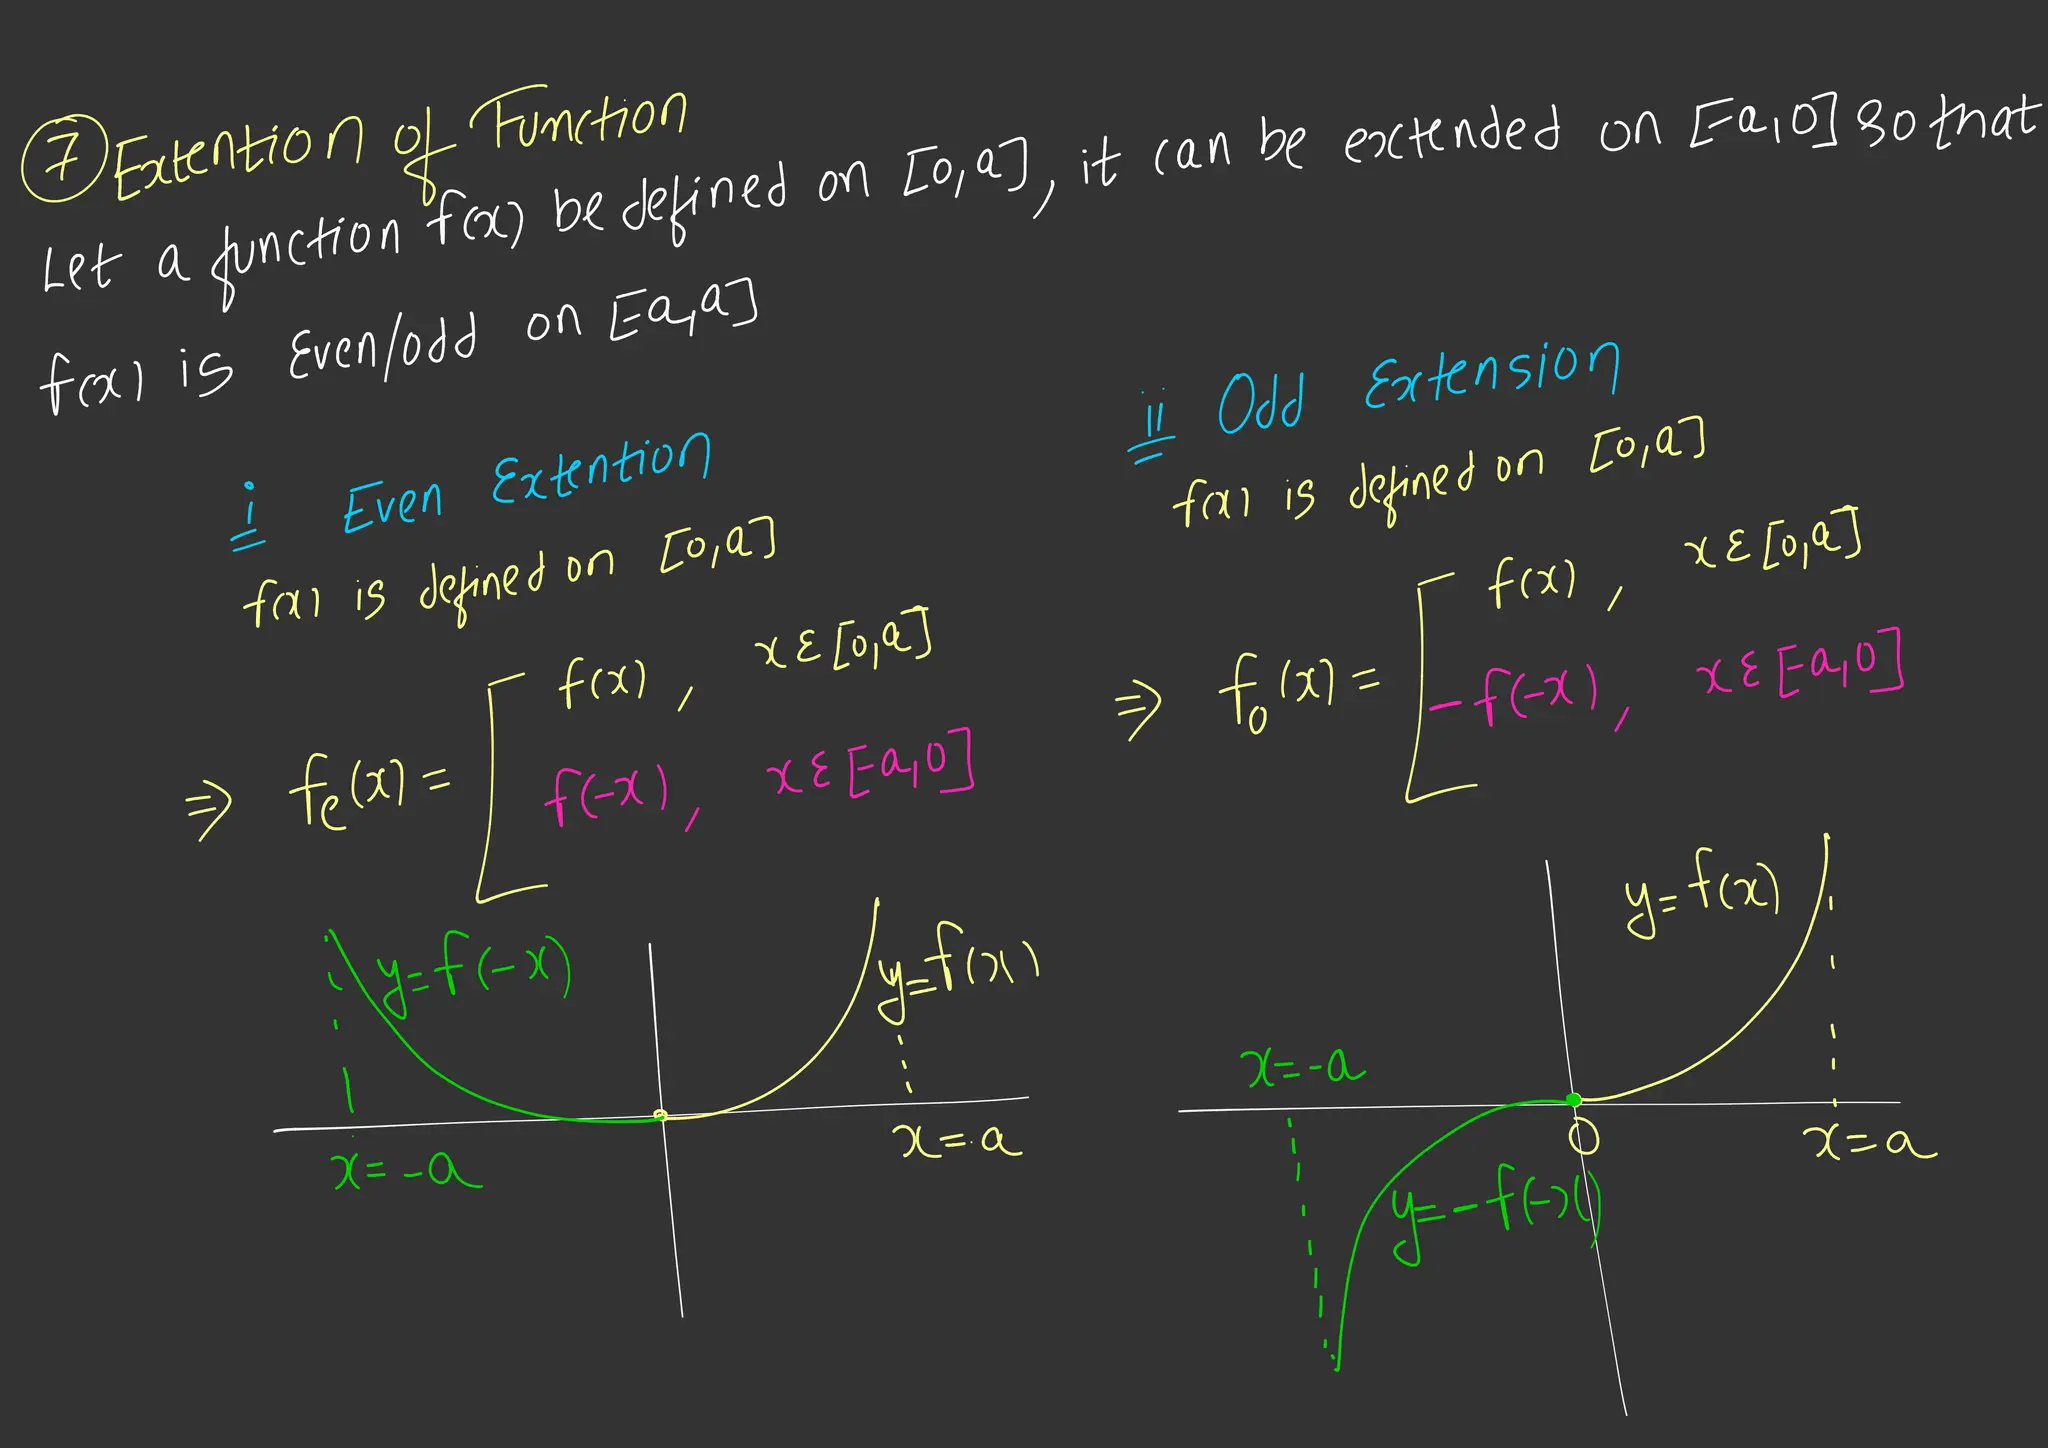 ⑦ Extention of Function
Let a function f(x) be defined on [0,a], it can be extended on [-a,0] so that
f(x) is Even/odd on [-a,a]
i Even Extention
f(x) is defined on [0,a]
⇒ fe(x) = [ f(x) , x ε [0,a]
f(-x) , x ε [-a,0]
y=f(-x)
y=f(x)
x=-a
x=a
ii Odd Extension
f(x) is defined on [0,a]
⇒ fo(x) = [ f(x) , x ε [0,a]
-f(-x) , x ε [-a,0]
y=f(x)
x=-a
0
x=a
y=-f(-x)